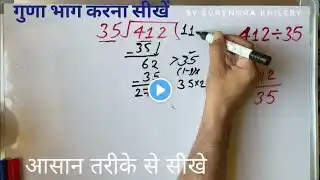 गुणा भाग करना सीखें
BY SURENDRA KHILERY
35)412(11
412÷35
-35↓
62
>35
-35
(1-9)x
35x2
2
12
35
आसान तरीके से सीखे